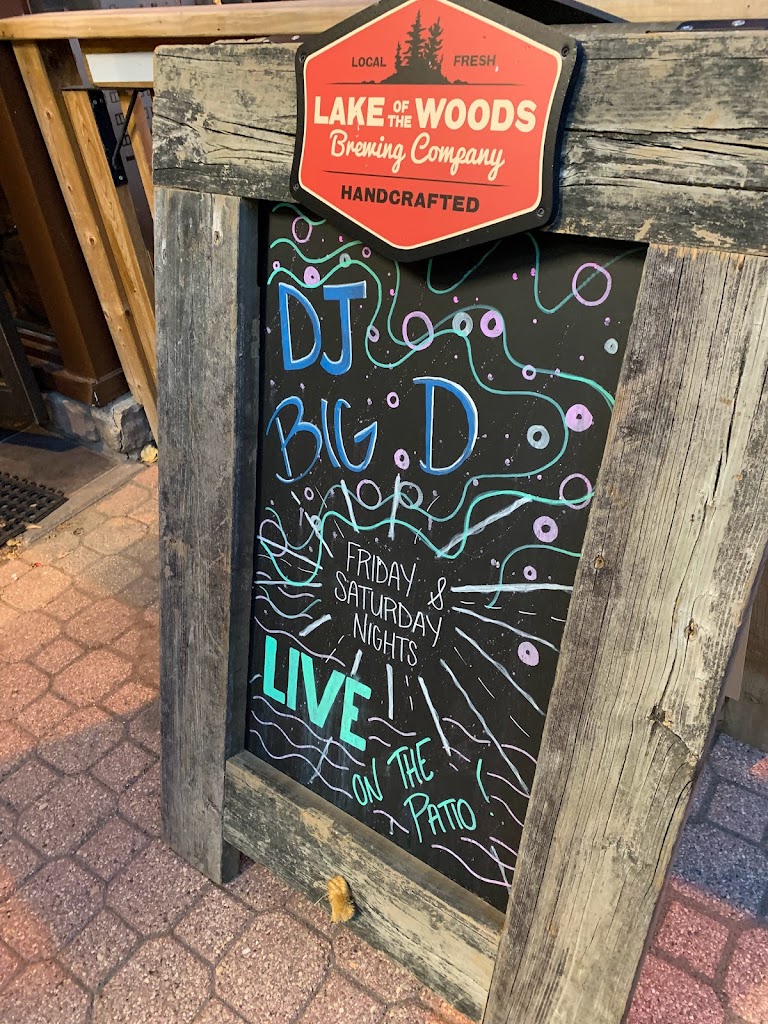 LOCAL FRESH
LAKE OF THE WOODS
Brewing Company
HANDCRAFTED
DJ
BIG D
FRIDAY &
SATURDAY
NIGHTS
LIVE
ON THE
PATIO!